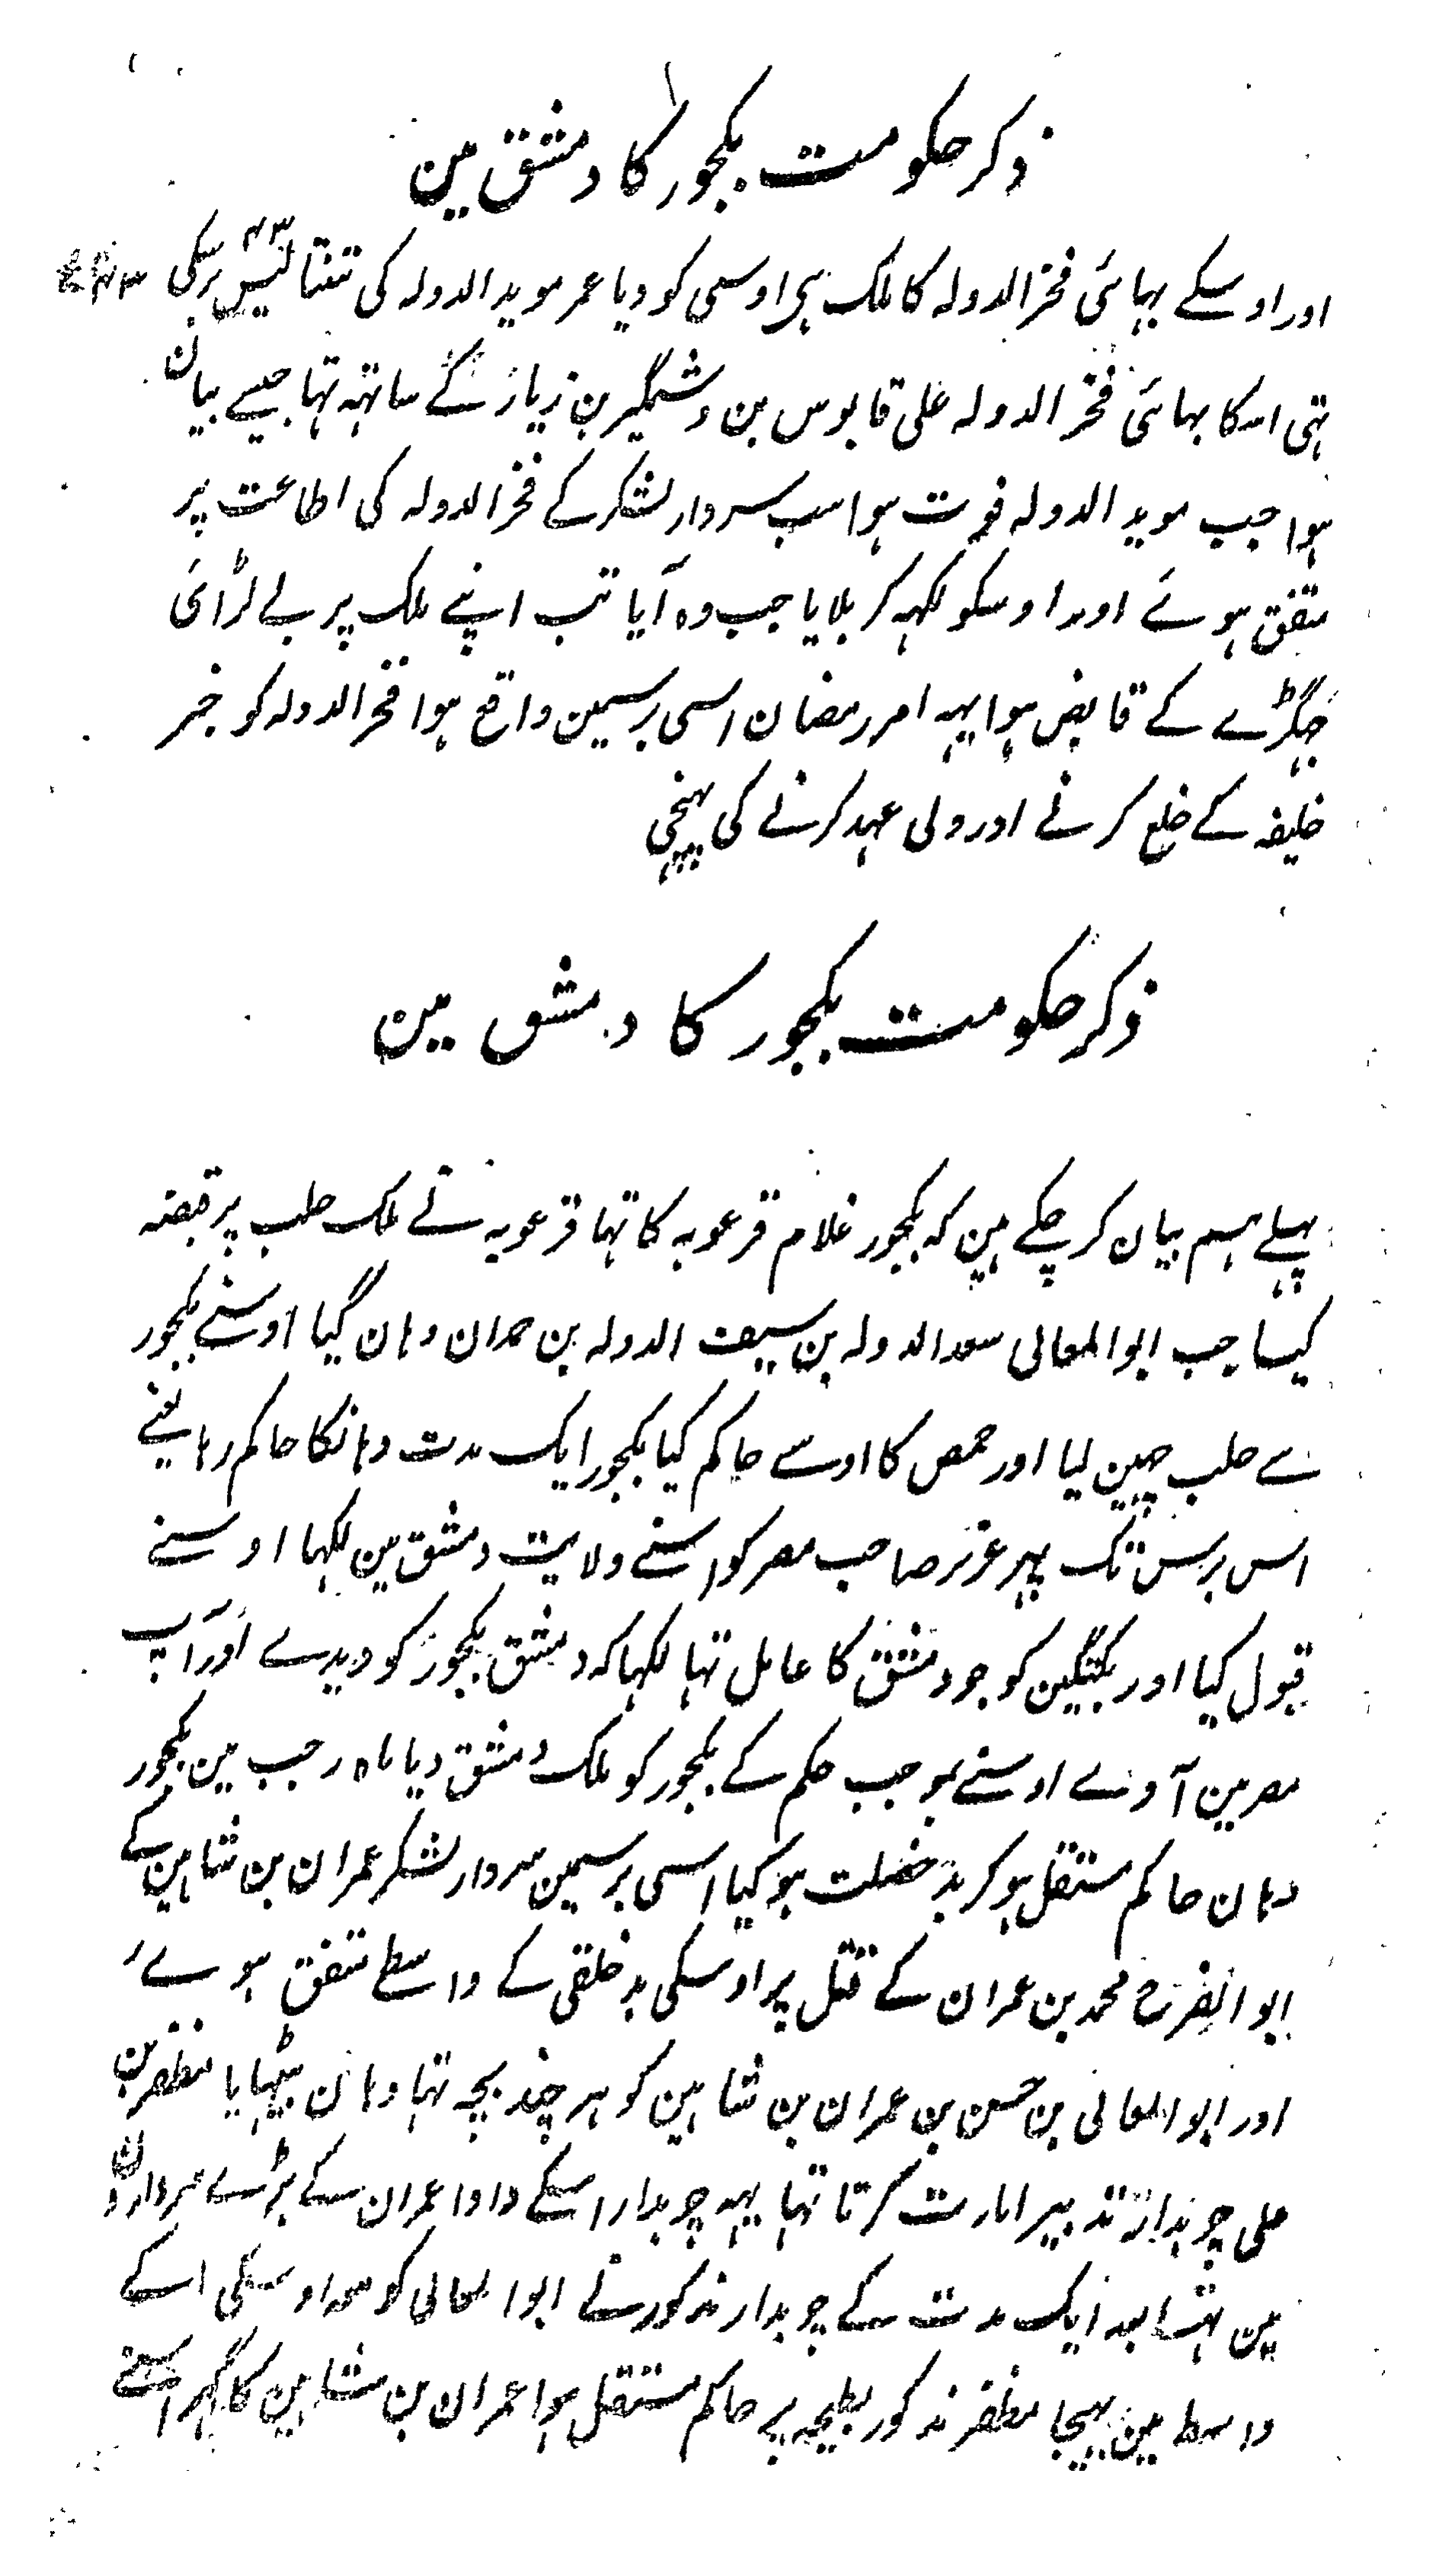 ذکر حکومت بکجور کا دمشق مین
اور اوسکے بہائی فخر الدولہ کا ملک بہی اوسی کو دیا عمر موید الدولہ کی تینتالیس ۴۳ برسکی
تہی اسکا بہائی فخر الدولہ علی قابوس بن وشمگیر بن زیار کے ساتہہ تہا جیسے بیان
ہوا جب موید الدولہ فوت ہوا سب سردار لشکر کے فخر الدولہ کی اطاعت پر
متفق ہوئے اور اوسکو لکہہ کر بلایا جب وہ آیا تب اپنے ملک پر بے لڑائی
جہگڑے کے قابض ہوا یہہ امر رمضان اسی برسمین واقع ہوا فخر الدولہ کو خبر
خلیفہ کے خلع کرنے اور ولی عہد کرنے کی پہنچی
ذکر حکومت بکجور کا دمشق مین
پہلے ہم بیان کر چکے ہین کہ بکجور غلام قرعویہ کا تہا قرعویہ نے ملک حلب پر قبضہ
کیا جب ابو المعالی سعد الدولہ بن سیف الدولہ بن حمدان وہان گیا اوسنے بکجور
سے حلب چہین لیا اور حمص کا اوسے حاکم کیا بکجور ایک مدت وہانکا حاکم رہا یعنے
اس برس تک پہر عزیز صاحب مصر کو اسنے ولایت دمشق مین لکہا اوسنے
قبول کیا اور بکتگین کو جو دمشق کا عامل تہا لکہا کہ دمشق بکجور کو دیدے اور آپ
مصر مین آوے اوسنے بموجب حکم کے بکجور کو ملک دمشق دیا ماہ رجب مین بکجور
وہان حاکم مستقل ہو کر بد خصلت ہو گیا اسی برسمین سردار لشکر عمران بن شاہین کے
ابو الفرج محمد بن عمران کے قتل پر اوسکی بد خلقی کے واسطے متفق ہوے
اور ابو المعالی بن حسن بن عمران بن شاہین کو ہر چند بچہ تہا وہان بیٹہایا مظفر بن
علی چوبدار تدبیر امارت کرتا تہا یہہ چوبدار اسکے دادا عمران کے بڑے سردارون
مین تہا بعد ایک مدت کے چوبدار مذکور نے ابو المعالی کو معہ اوسکی اسکے
واسط مین بہیجا مظفر مذکور بطیحہ پر حاکم مستقل ہوا عمران بن شاہین کا گہر اسنے